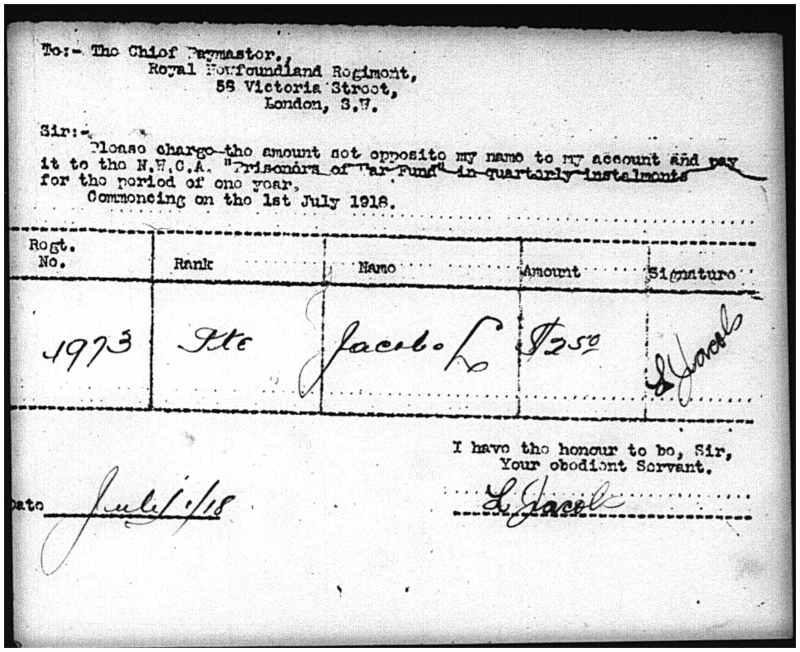 To:- The Chief Paymaster.,
Royal Newfoundland Regiment,
58 Victoria Street,
London, S.W.
Sir:-
Please charge the amount set opposite my name to my account and pay
it to the N.W.C.A. "Prisoners of War Fund" in quarterly instalments
for the period of one year,
Commencing on the 1st July 1918.
Regt. No. Rank Name Amount Signature
1973 Pte Jacobs L $2.50 L Jacobs
I have the honour to be, Sir,
Your obedient Servant.
Date July 1/18 L Jacobs